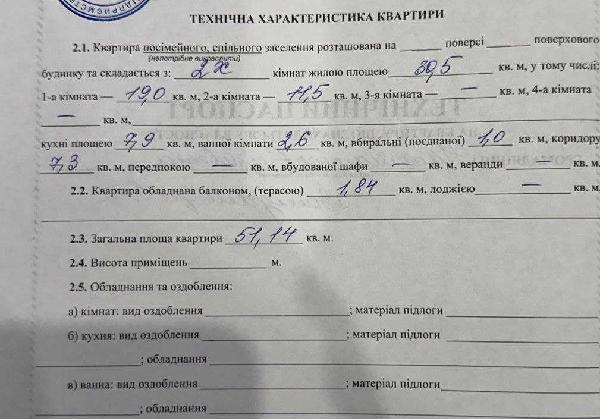 ТЕХНІЧНА ХАРАКТЕРИСТИКА КВАРТИРИ
2.1. Квартира посімейного, спільного заселення розташована на ______ поверсі ______ поверхового
(непотрібне викреслити)
будинку та складається з: 2х кімнат жилою площею 30,5 кв. м, у тому числі:
1-а кімната — 19,0 кв. м, 2-а кімната — 11,5 кв. м, 3-я кімната — — кв. м, 4-а кімната
— кв. м,
кухні площею 7,9 кв. м, ванної кімнати 2,6 кв. м, вбиральні (поєднаної) 1,0 кв. м, коридору
7,3 кв. м, передпокою — кв. м, вбудованої шафи — кв. м, веранди — кв. м.
2.2. Квартира обладнана балконом, (терасою) 1,84 кв. м, лоджією — кв. м.
2.3. Загальна площа квартири 51,14 кв. м.
2.4. Висота приміщень ____________ м.
2.5. Обладнання та оздоблення:
а) кімнат: вид оздоблення ____________ ; матеріал підлоги ____________
б) кухня: вид оздоблення ____________ ; матеріал підлоги ____________
____________ ; обладнання ____________
в) ванна: вид оздоблення ____________ ; матеріал підлоги ____________
____________ ; обладнання ____________